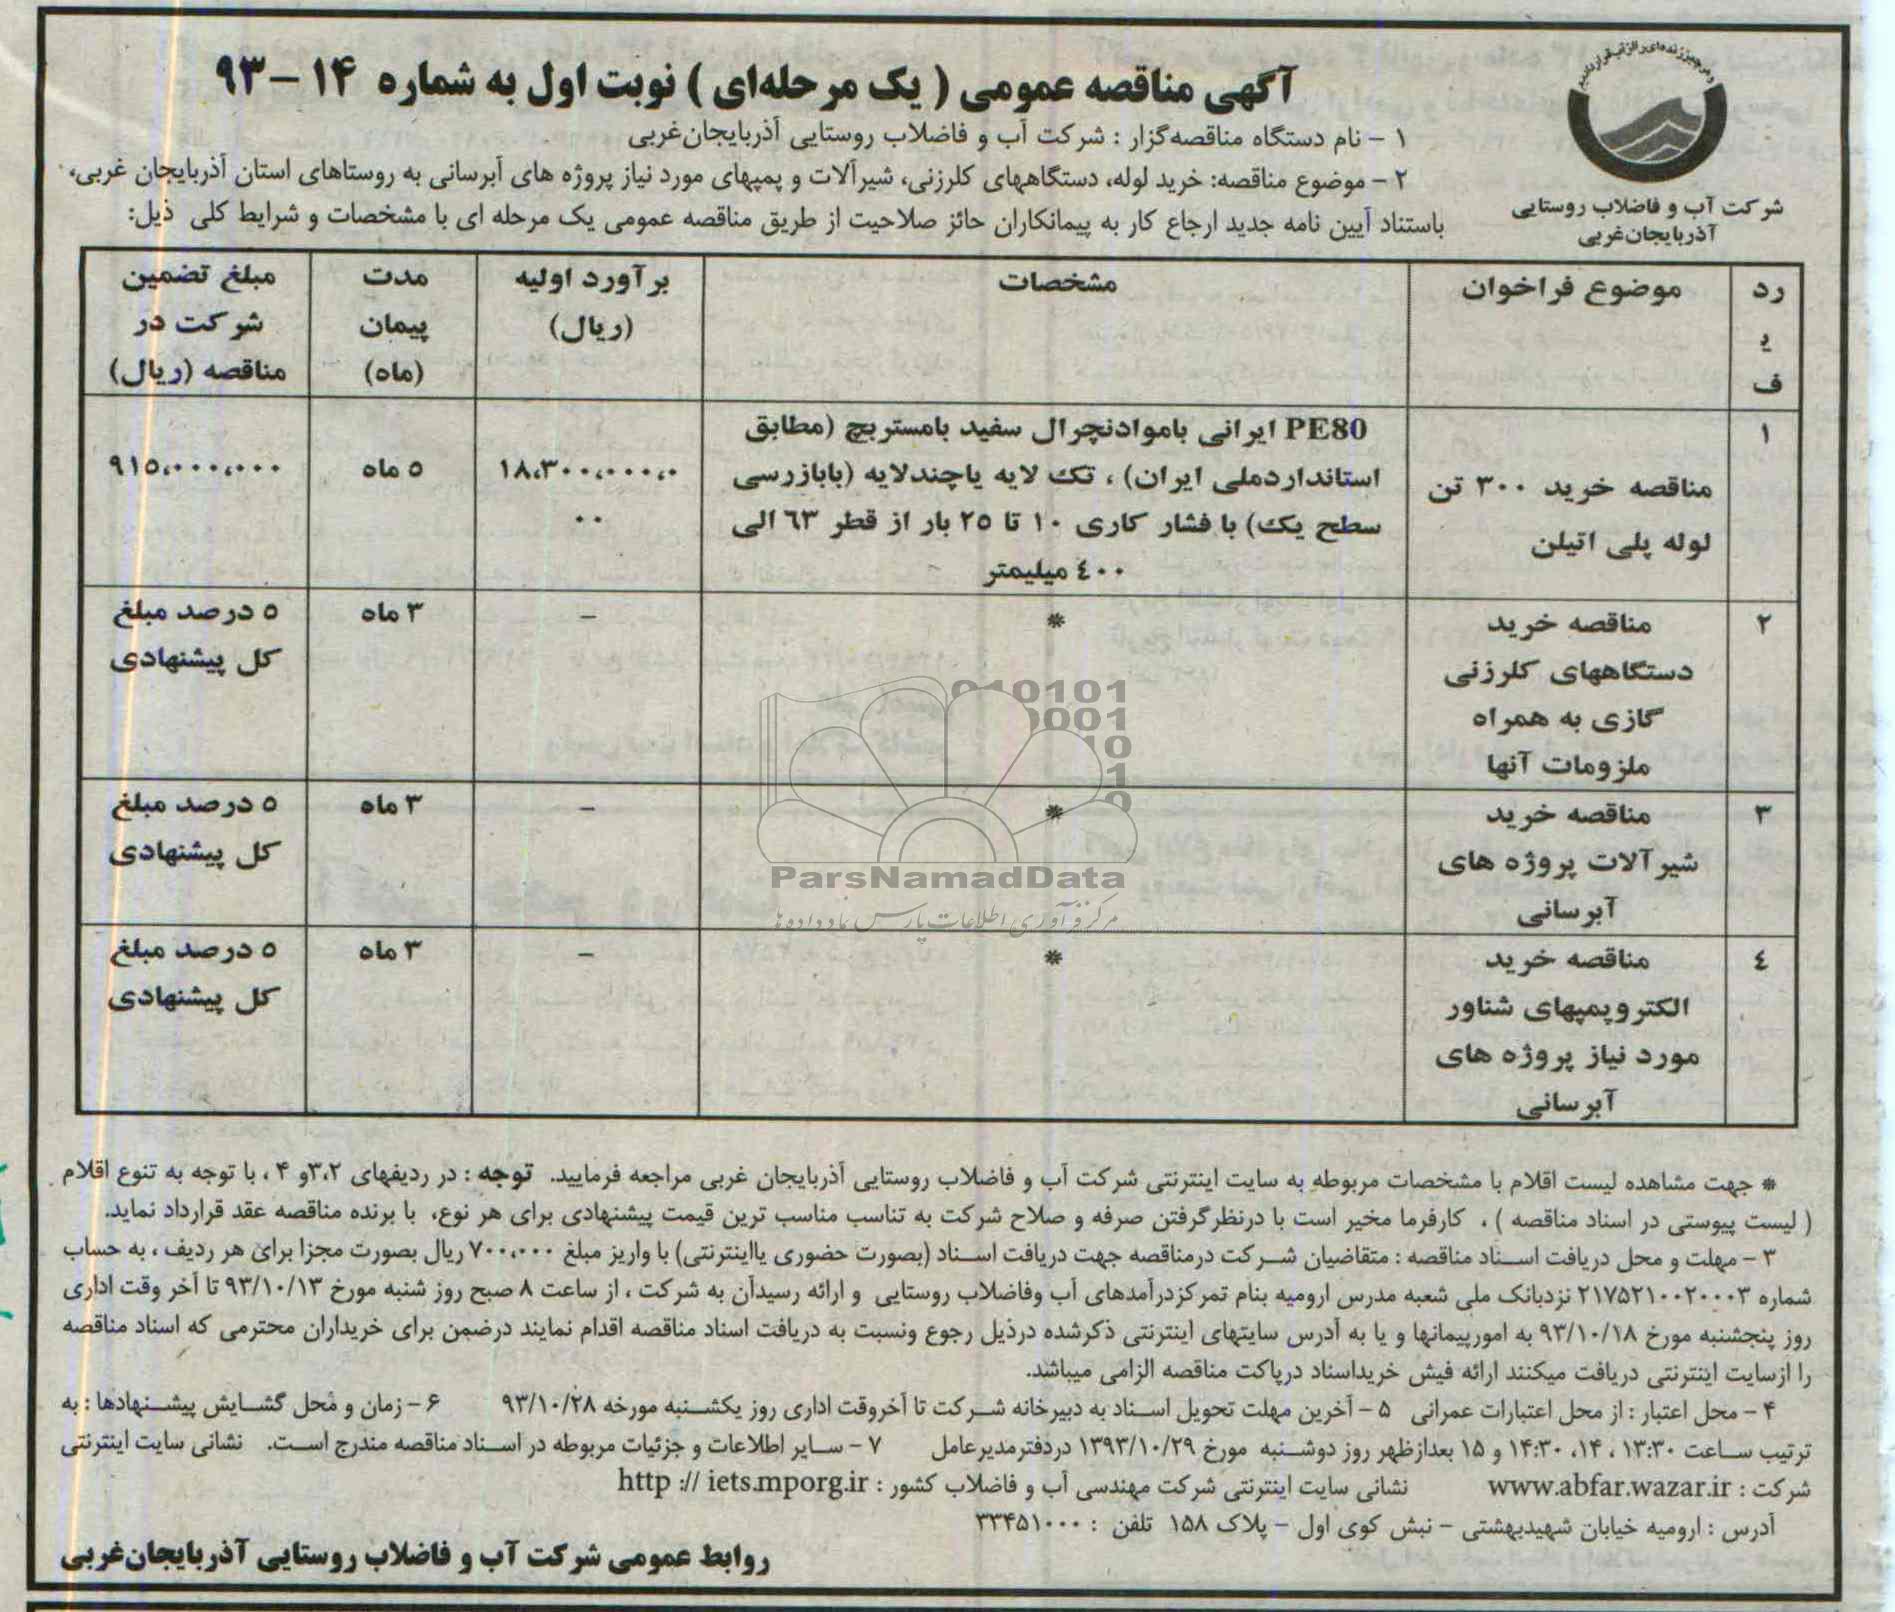 آگهی مناقصه عمومی ( یک مرحله‌ای ) نوبت اول به شماره ۱۴ – ۹۳
شرکت آب و فاضلاب روستایی
آذربایجان‌غربی
۱ – نام دستگاه مناقصه‌گزار : شرکت آب و فاضلاب روستایی آذربایجان‌غربی
۲ – موضوع مناقصه: خرید لوله، دستگاههای کلرزنی، شیرآلات و پمپهای مورد نیاز پروژه های آبرسانی به روستاهای استان آذربایجان غربی،
باستناد آیین نامه جدید ارجاع کار به پیمانکاران حائز صلاحیت از طریق مناقصه عمومی یک مرحله ای با مشخصات و شرایط کلی ذیل:
ردیف
موضوع فراخوان
مشخصات
برآورد اولیه
(ریال)
مدت
پیمان
(ماه)
مبلغ تضمین
شرکت در
مناقصه (ریال)
۱
مناقصه خرید ۳۰۰ تن
لوله پلی اتیلن
PE80 ایرانی باموادنچرال سفید بامستربچ (مطابق
استانداردملی ایران) ، تک لایه یاچندلایه (بابازرسی
سطح یک) با فشار کاری ۱۰ تا ۲۵ بار از قطر ۶۳ الی
۴۰۰ میلیمتر
۱۸،۳۰۰،۰۰۰،۰
۰۰
۵ ماه
۹۱۵،۰۰۰،۰۰۰
۲
مناقصه خرید
دستگاههای کلرزنی
گازی به همراه
ملزومات آنها
*
–
۳ ماه
۵ درصد مبلغ
کل پیشنهادی
۳
مناقصه خرید
شیرآلات پروژه های
آبرسانی
*
–
۳ ماه
۵ درصد مبلغ
کل پیشنهادی
۴
مناقصه خرید
الکتروپمپهای شناور
مورد نیاز پروژه های
آبرسانی
*
–
۳ ماه
۵ درصد مبلغ
کل پیشنهادی
010101
0001
10
1
0
ParsNamadData
مرکز فرآوری اطلاعات پارس نماد داده ها
* جهت مشاهده لیست اقلام با مشخصات مربوطه به سایت اینترنتی شرکت آب و فاضلاب روستایی آذربایجان غربی مراجعه فرمایید. توجه : در ردیفهای ۳،۲و ۴ ، با توجه به تنوع اقلام
( لیست پیوستی در اسناد مناقصه ) ، کارفرما مخیر است با درنظرگرفتن صرفه و صلاح شرکت به تناسب مناسب ترین قیمت پیشنهادی برای هر نوع، با برنده مناقصه عقد قرارداد نماید.
۳ – مهلت و محل دریافت اسناد مناقصه : متقاضیان شرکت درمناقصه جهت دریافت اسناد (بصورت حضوری یااینترنتی) با واریز مبلغ ۷۰۰،۰۰۰ ریال بصورت مجزا برای هر ردیف ، به حساب
شماره ۲۱۷۵۲۱۰۰۲۰۰۰۳ نزدبانک ملی شعبه مدرس ارومیه بنام تمرکزدرآمدهای آب وفاضلاب روستایی و ارائه رسیدآن به شرکت ، از ساعت ۸ صبح روز شنبه مورخ ۹۳/۱۰/۱۳ تا آخر وقت اداری
روز پنجشنبه مورخ ۹۳/۱۰/۱۸ به امورپیمانها و یا به آدرس سایتهای اینترنتی ذکرشده درذیل رجوع ونسبت به دریافت اسناد مناقصه اقدام نمایند درضمن برای خریداران محترمی که اسناد مناقصه
را ازسایت اینترنتی دریافت میکنند ارائه فیش خریداسناد درپاکت مناقصه الزامی میباشد.
۴ – محل اعتبار : از محل اعتبارات عمرانی ۵ – آخرین مهلت تحویل اسناد به دبیرخانه شرکت تا آخروقت اداری روز یکشنبه مورخه ۹۳/۱۰/۲۸ ۶ – زمان و محل گشایش پیشنهادها : به
ترتیب ساعت ۱۳:۳۰ ، ۱۴، ۱۴:۳۰ و ۱۵ بعدازظهر روز دوشنبه مورخ ۱۳۹۳/۱۰/۲۹ دردفترمدیرعامل ۷ – سایر اطلاعات و جزئیات مربوطه در اسناد مناقصه مندرج است. نشانی سایت اینترنتی
شرکت : www.abfar.wazar.ir نشانی سایت اینترنتی شرکت مهندسی آب و فاضلاب کشور : http :// iets.mporg.ir
آدرس : ارومیه خیابان شهیدبهشتی – نبش کوی اول – پلاک ۱۵۸ تلفن : ۳۳۴۵۱۰۰۰
روابط عمومی شرکت آب و فاضلاب روستایی آذربایجان‌غربی